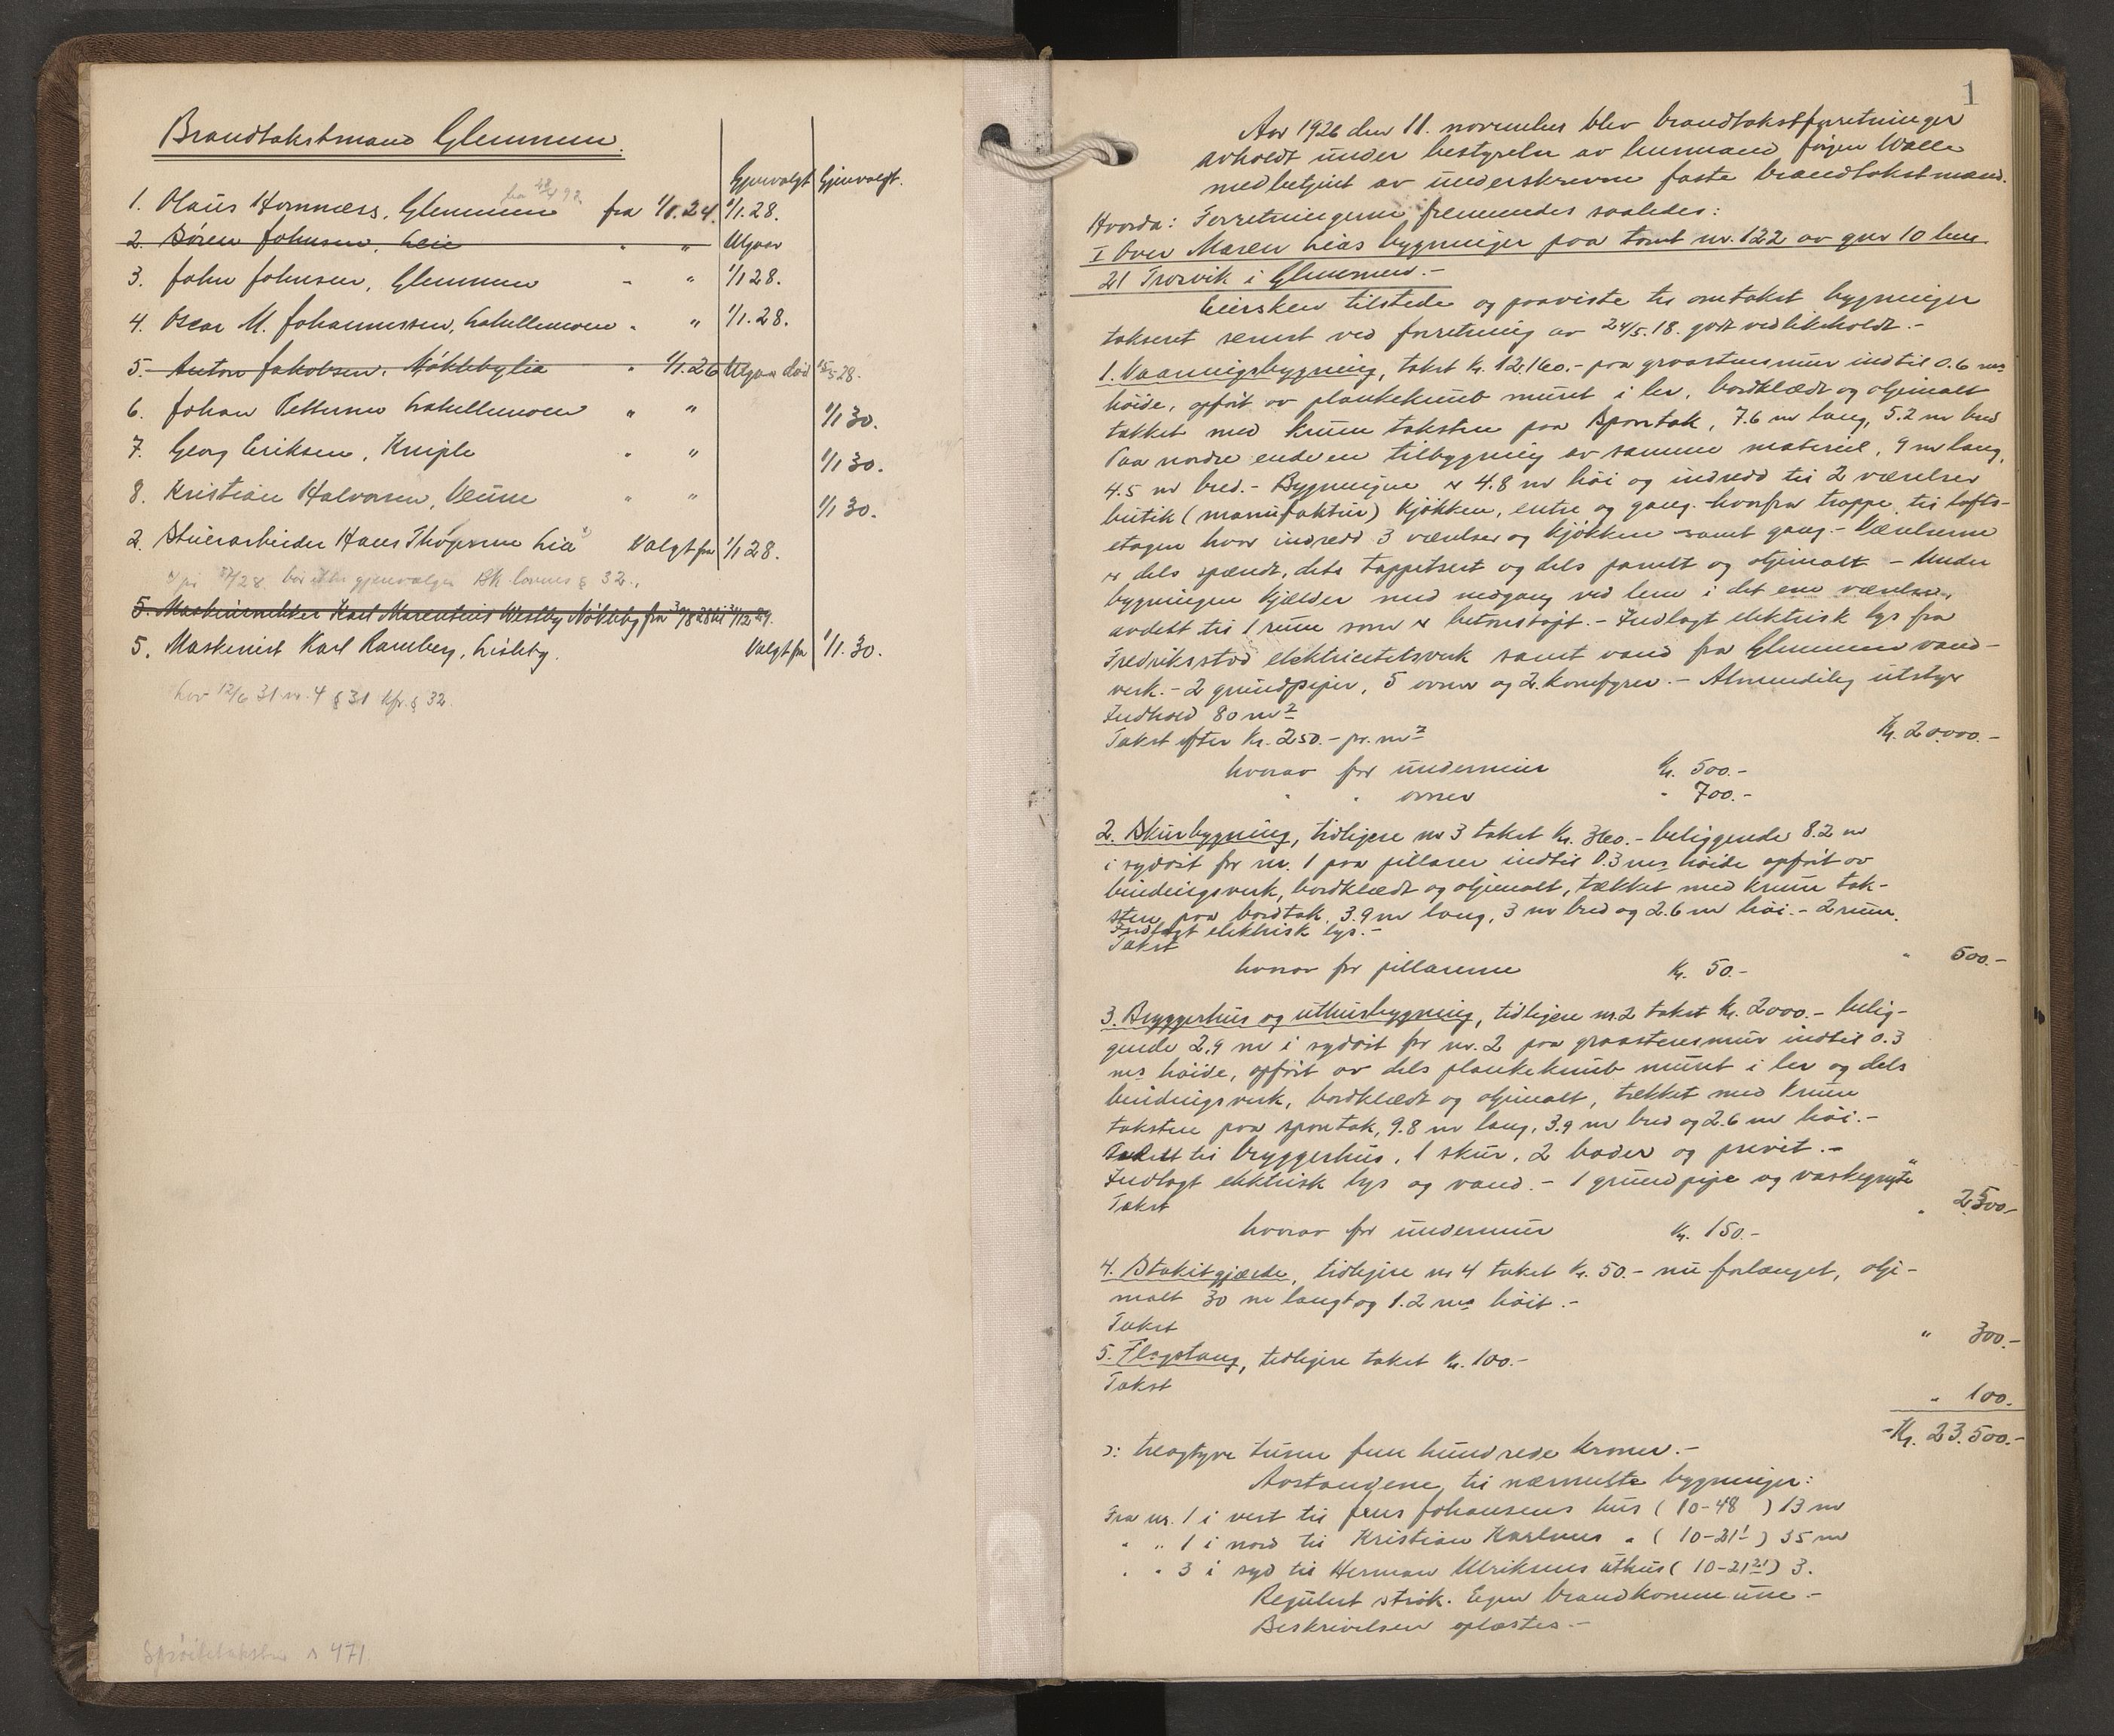 Brandtakstmænd Glemmen.
Gjenvalgt Gjenvalgt.
1. Olaus Hornnæss, Glemmen fra 1/1.24. 1/1.28.
2. Søren Johnsen, Leie " " Utgaar
3. John Johnsen, Glemmen - " 1/1 28.
4. Oscar M. Johannessen, Labellemoen " " 1/1.28.
5. Anton Jakobsen, Nøklebylia " 1/1.26 Utgaar død 28.
6. Johan Petterson Labellemoen " " 1/1 30.
7. Georg Eriksen, Kniple " " 1/1 30.
8. Kristian Halvorsen, Veum " " 1/1 30.
2. Stuerarbeider Hans Thøgersen Lia Valgt fra 1/1 28.
gjenvalges lovens § 32.
5. Maskinsnekker Karl Marentius Westby Nøkleby fra
5. Maskinist Karl Ramberg, Lisleby. Valgt fra 1/1.30.
Lov 12/6 31 nr. 4 § 31 kfr. § 32.
Sprøitetakster s 471
1
Aar 1926 den 11. november blev brandtakstforretninger
avholdt under bestyrelse av lensmand Jørgen Walle
med betjent av underskrevne faste brandtakstmænd.
Hvorda: Forretningerne fremmedes saaledes:
I Over Maren Lias bygninger paa tomt nr. 122 av gnr 10 bnr
21 Trosvik i Glemmen.-
Eiersken tilstede og paaviste til omtakst bygninger
takseret senest ved forretning av 24/5.18. godt vedlikeholdt.-
1. Vaaningsbygning, takst Kr. 12,160.- paa graastensmur indtil 0.6 ms
høide, opført av plankekubb muret i ler, bordklædt og oljemalt
tækket med krum taksten paa spontak, 7.6 m lang, 5.2 m bred
Paa nordre ende en tilbygning av samme materiel, 9 m lang,
4.5 m bred.- Bygningen er 4.8 m høi og indredd til 2 værelser
butik (manufaktur) kjøkken, entre og gang hvorfra trappe til lofts-
etagen hvor indredd 3 værelser og kjøkken samt gang.- Værelserne
er dels spændt, dels tappetsert og dels panelt og oljemalt - Under
bygningen kjælder med nedgang ved lem i det ene værelse,
avdelt til 1 rum som er betonstøpt.- Indlagt elektrisk lys fra
Fredriksstad elektricitetsverk samt vand fra Glemmen vand-
verk.- 2 grundpiper, 5 ovner og 2 komfyrer.- Almindelig utstyr
Indhold 80 m2
Takst efter Kr. 250.- pr. m2 Kr. 20.000.-
hvorav for undermur Kr. 500.-
" " ovner " 700.-
2. Skurbygning, tidligere nr 3 takst Kr. 360.- beliggende 8.2 m
i sydøst for nr. 1 paa pillarer indtil 0.3 ms høide opført av
bindingsverk, bordklædt og oljemalt, tækket med krum tak-
sten paa bordtak, 3.9 m lang, 3 m bred og 2.6 m høi.- 2 rum.
Indlagt elektrisk lys.-
Takst " 500.-
hvorav for pillarerne Kr. 50.-
3. Bryggerhus og uthusbygning, tidligere nr. 2 takst Kr. 2000.- belig-
gende 2,9 m i sydøst for nr. 2 paa graastensmur indtil 0.3
ms høide, opført av dels plankekubb muret i ler og dels
bindingsverk, bordklædt og oljemalt, tækket med krum
taksten paa spontak, 9.8 m lang, 3.9 m bred og 2.6 m høi.-
Indredd til bryggerhus, 1 skur, 2 boder og privit.-
Indlagt elektrisk lys og vand.- 1 grundpipe og vaskegryte
Takst " 2.500.-
hvorav for undermur Kr. 150.-
4. Stakitgjærde, tidligere nr 4 takst Kr. 50.- nu forlænget, olje-
malt 30 m langt og 1.2 ms høit.-
Takst " 300.-
5. Flagstang, tidligere takst Kr. 100.-
Takst " 100.-
Kr. 23.500.-
ɔ: treogtyve tusen fem hundrede kroner.-
Avstandene til nærmeste bygninger:
Fra nr. 1 i vest til Jens Johansens hus (10-48) 13 m
" " 1 i nord til Kristian Karlsens " (10-21) 35 m
" " 3 i syd til Herman Ulriksens uthus (10-21) 3.
Regulert strøk. Egen brandkommune.-
Beskrivelsen oplæstes.-